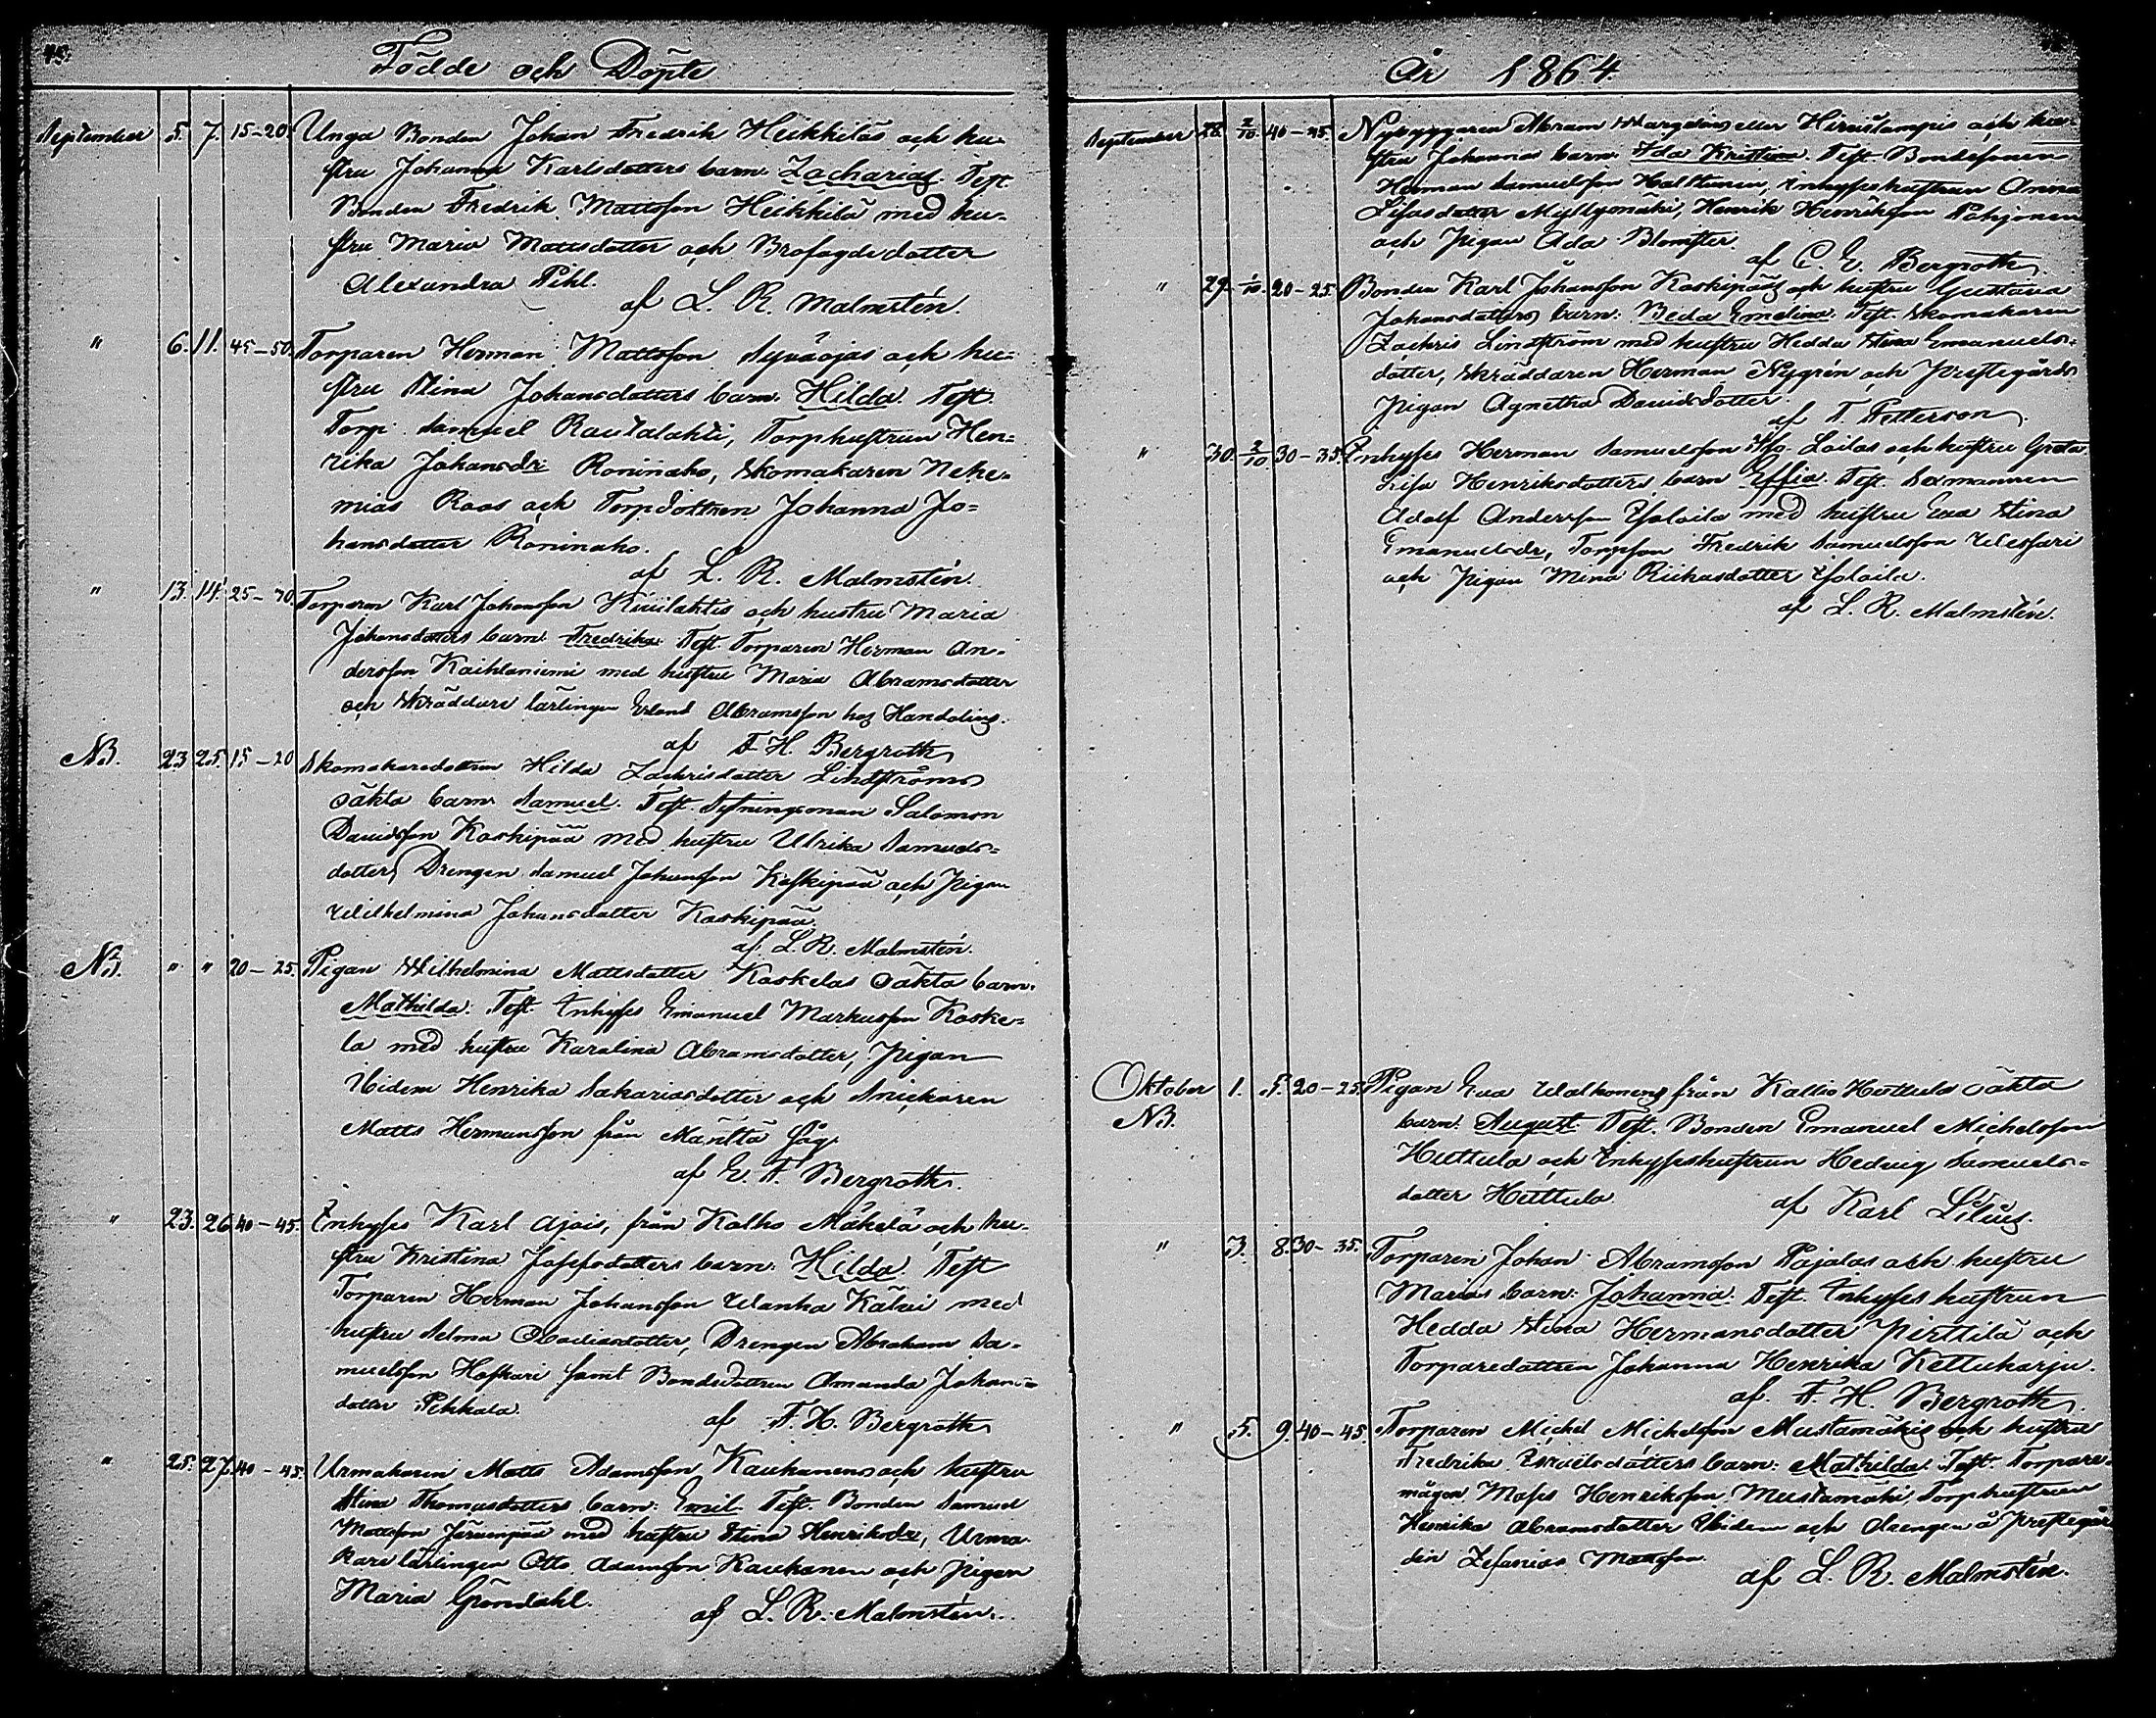 Födde och Döpte
September 5. 7. 15-20 Unga Bonden Johan Fredrik Heikkiläs och hu-
stru Johanna Karlsdotters barn: Zacharias. Test.
Bonden Fredrik Mattsson Heikkilä med hu-
stru Maria Mattsdotter och Brofogdedotter
Alexandra Pihl.
af L. R. Malmstén.
" 6. 11. 45-50. Torparen Herman Mattsson Syväojas och hu-
stru Stina Johansdotters barn: Hilda. Test.
Torp. Samuel Rautalahti, Torphustrun Hen-
rika Johansdr Roninaho, Skomakaren Nehe-
mias Roos och Torpdottren Johanna Jo-
hansdotter Roninaho.
af L. R. Malmstén.
" 13. 14. 25-30. Torparen Karl Johansson Kiuilahtis och hustru Maria
Johansdotters barn: Fredrika. Test. Torparen Herman An-
dersson Kaihlaniemi med hustru Maria Abramsdotter
och Skräddare lärlingen Erland Abramsson hos Handolins.
af F. H. Bergroth
NB. 23. 25. 15-20 Skomakaredottren Hilda Zachrisdotter Lindströms
oäkta barn: Samuel. Test. Sytningsman Salomon
Davidsson Koskipää med hustru Ulrika Samuels-
dotter, Drengen Samuel Johansson Koskipää och Pigan
Wilhelmina Johansdotter Koskipää.
af L. R. Malmstén.
NB. " " 20-25. Pigan Wilhelmina Mattsdotter Koskelas oäkta barn:
Mathilda. Test. Inhyses Emanuel Markusson Koske-
la med hustru Karolina Abramsdotter, Pigan
Ibidem Henrika Sakariasdotter och Snickaren
Matts Hermansson från Mänttä såg.
af E. F. Bergroth.
" 23. 26. 40-45. Inhyses Karl Ajois, från Kalho Mäkelä och hu-
stru Kristina Josefsdotters barn: Hilda. Test
Torparen Herman Johansson Wanha Kälvi med
hustru Selma Obadiasdotter, Drengen Abraham Sa-
muelsson Hoskari samt Bondedottren Amanda Johans-
dotter Pekkala.
af F. H. Bergroth
" 25. 27. 40-45. Urmakaren Matts Adamsson Kauhanens och hustru
Stina Thomasdotters barn: Emil. Test. Bonden Samuel
Mattsson Järvenpää med hustru Stina Henriksdr, Urma-
kare lärlingen Otto Adamsson Kauhanen och Pigan
Maria Gröndahl.
af L. R. Malmstén.
År 1864
September 28. 2/10. 40-45. Nybyggaren Abram eller Hirvilampis och hu-
stru Johannas barn: Ida Kristina. Test. Bondesonen
Herman Samuelsson Halttunen, Inhyseshustrun Anna
Lisasdotter Myllymäki, Henrik Henriksson Pohjonen
och Pigan Ada Blomster.
af C. E. Bergroth
" 29. 1/10. 20-25. Bonden Karl Johansson Koskipääs och hustru Gustava
Johansdotters barn: Beda Emelina. Test. Skomakaren
Zachris Lindström med hustru Hedda Stina Emanuels-
dotter, Skräddaren Herman Nygrén och Prestegårds
Pigan Agnetha Davidsdotter.
af F. Petterson
" 30. 2/10 30-35. Inhyses Herman Samuelsson Loilas och hustru Greta
Lisa Henriksdotters barn Effia. Test. Sexmannen
Adolf Andersson Yloila med hustru Eva Stina
Emanuelsdr, Torpson Fredrik Samuelsson Wessari
och Pigan Mina Rikhasdotter Yloila.
af L. R. Malmstén.
Oktober 1. 5. 20-25. Pigan Eva Walkonens från Kallio Huttula oäkta
NB. barn: August. Test. Bonden Emanuel Michelsson
Huttula och Inhyseshustrun Hedvig Samuels-
dotter Huttula.
af Karl Lilius.
" 3. 8. 30-35. Torparen Johan Abramsson Pajalas och hustru
Marias barn: Johanna. Test. Inhyses hustrun
Hedda Stina Hermansdotter Pirttilä och
Torparedottren Johanna Henrika Kettuharju.
af F. H. Bergroth.
" 5. 9. 40-45. Torparen Michel Michelsson Mustamäkis och hustru
Fredrika Israelsdotters barn: Mathilda. Test. Torpare-
mågen Moses Henriksson Mustamäki, Torphustrun
Henrika Abramsdotter Ibidem och drengen å Prestegår-
den Zefanias Mattsson.
af L. R. Malmstén.